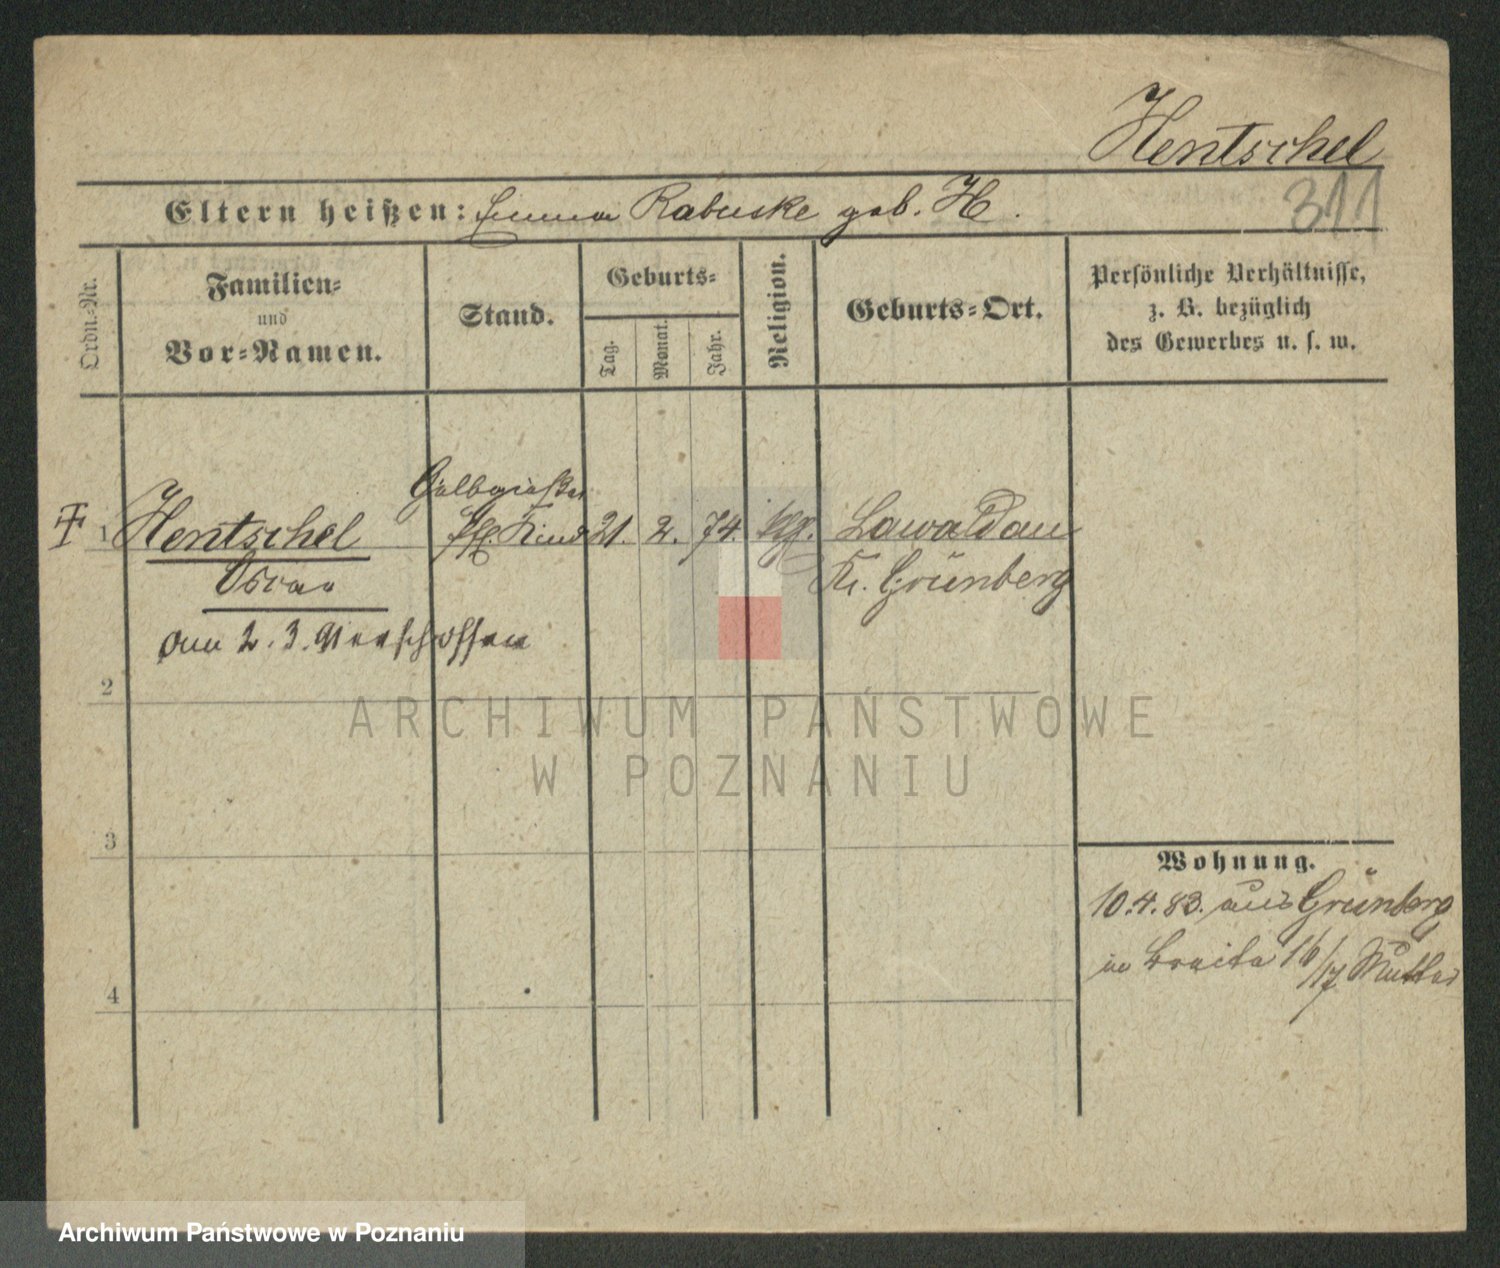 Hentschel
311
Eltern heißen: Emma Rabuske geb. H.
Ordn.-Nr.
Familien-
und
Vor-Namen.
Stand.
Geburts-
Tag.
Monat.
Jahr.
Religion.
Geburts-Ort.
Persönliche Verhältnisse,
z. B. bezüglich
des Gewerbes u. s. w.
Gelbgießer
1 Hentschel Kind 21. 2. 74. Lawaldau
Oscar Kr. Grünberg
am 2. 3. 91 erschossen
2
3
4
Wohnung.
10.4.83. aus Grünberg
in Breite 16/17 Mutter
ARCHIWUM PAŃSTWOWE
W POZNANIU
Archiwum Państwowe w Poznaniu